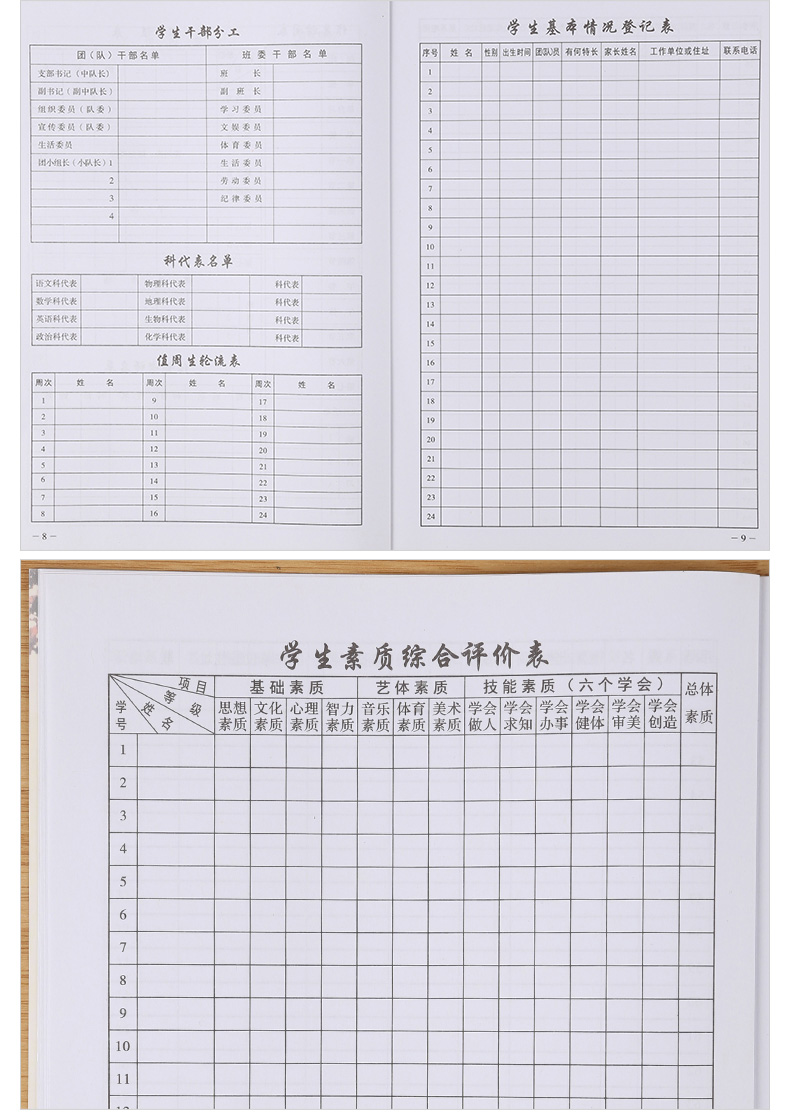 学生干部分工
团（队）干部名单 班委干部名单
支部书记（中队长） 班长
副书记（副中队长） 副班长
组织委员（队委） 学习委员
宣传委员（队委） 文娱委员
生活委员 体育委员
团小组长（小队长）1 生活委员
2 劳动委员
3 纪律委员
4
科代表名单
语文科代表 物理科代表 科代表
数学科代表 地理科代表 科代表
英语科代表 生物科代表 科代表
政治科代表 化学科代表 科代表
值周生轮流表
周次 姓名 周次 姓名 周次 姓名
1 9 17
2 10 18
3 11 19
4 12 20
5 13 21
6 14 22
7 15 23
8 16 24
－8－
学生基本情况登记表
序号 姓名 性别 出生时间 团(队)员 有何特长 家长姓名 工作单位或住址 联系电话
1
2
3
4
5
6
7
8
9
10
11
12
13
14
15
16
17
18
19
20
21
22
23
24
－9－
学生素质综合评价表
项目 等级 姓名 学号 基础素质 艺体素质 技能素质（六个学会） 总体素质
思想素质 文化素质 心理素质 智力素质 音乐素质 体育素质 美术素质 学会做人 学会求知 学会办事 学会健体 学会审美 学会创造
1
2
3
4
5
6
7
8
9
10
11
12